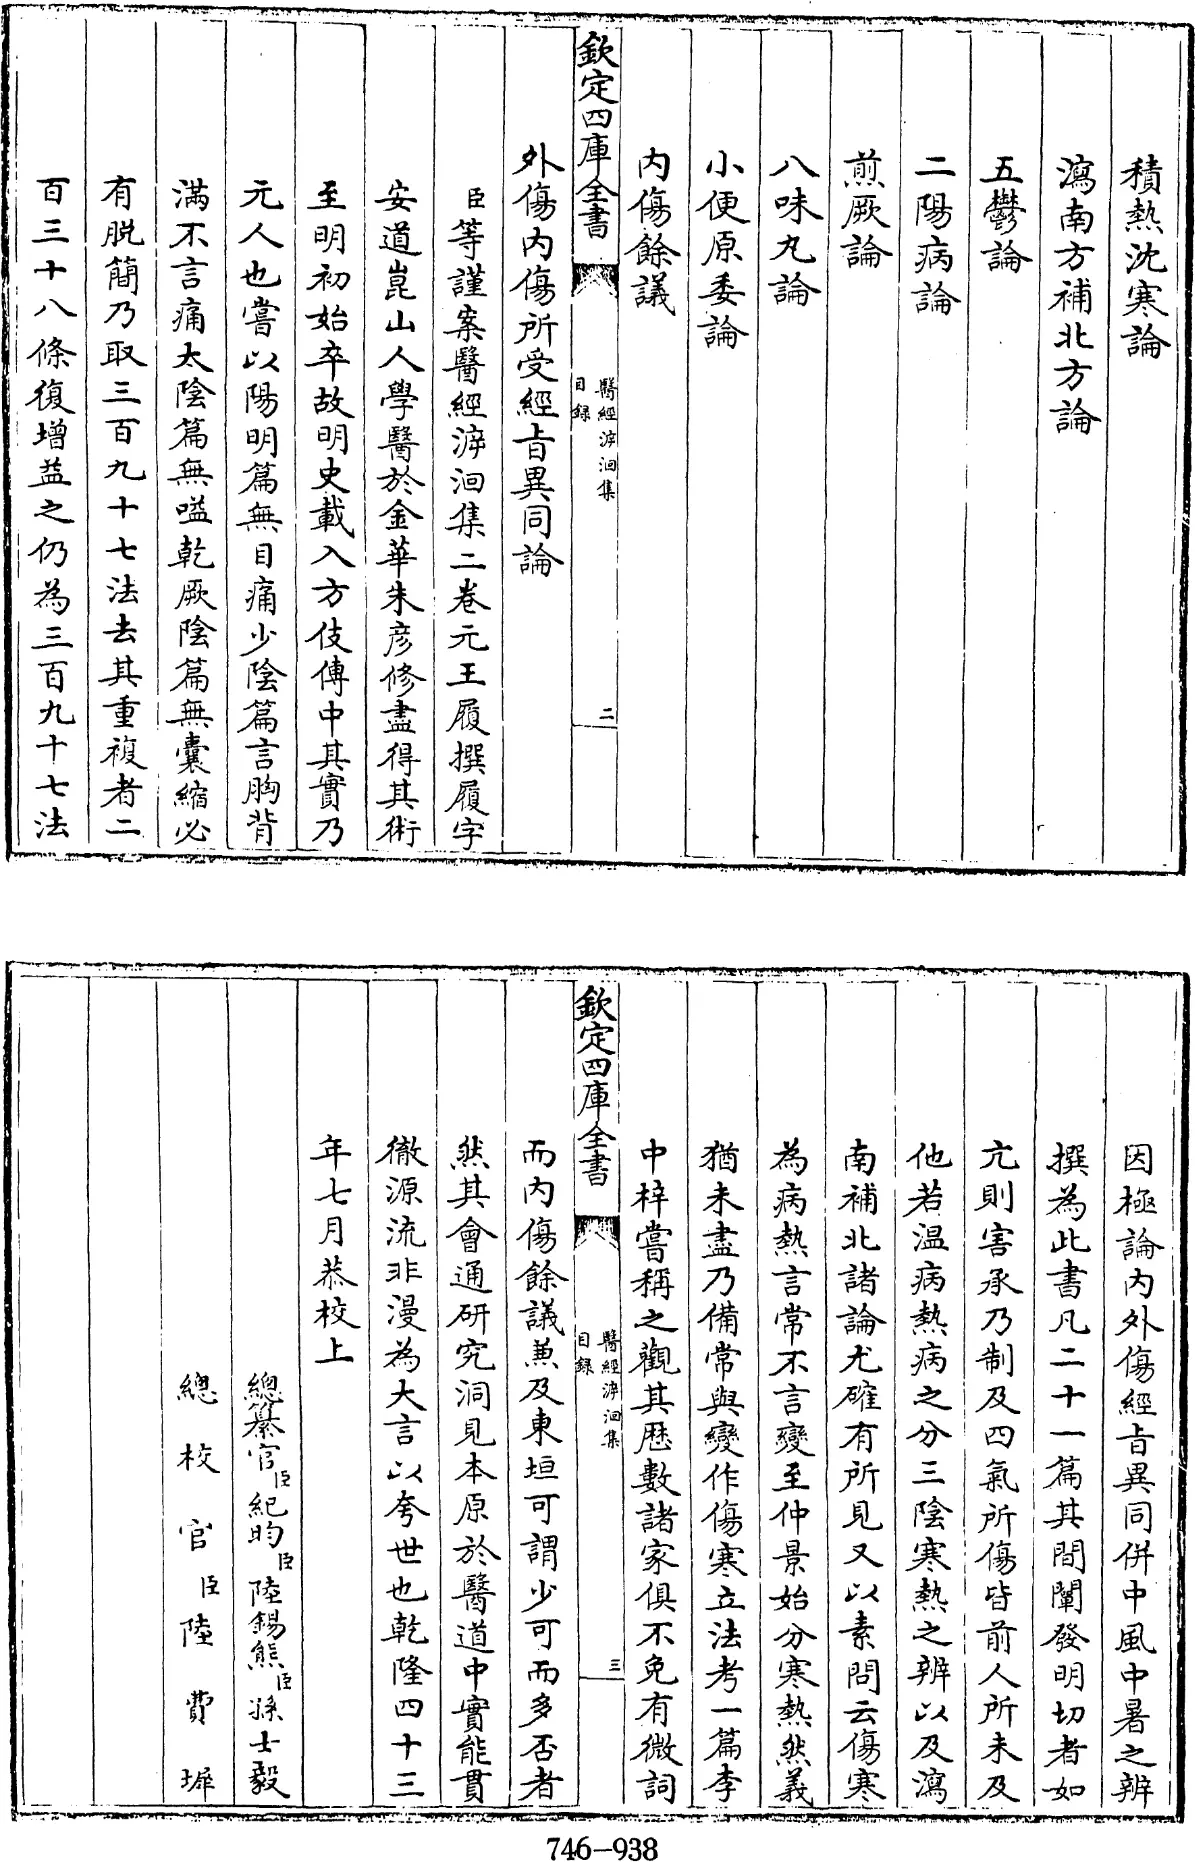 積熱沈寒論
瀉南方補北方論
五鬱論
二陽病論
煎厥論
八味丸論
小便原委論
内傷餘議
欽定四庫全書
醫經溯洄集
目録
二
外傷内傷所受經旨異同論
臣等謹案醫經溯洄集二卷元王履撰履字
安道崑山人學醫於金華朱彦修盡得其術
至明初始卒故明史載入方伎傳中其實乃
元人也嘗以陽明篇無目痛少陰篇言胸背
滿不言痛太陰篇無嗌乾厥陰篇無囊縮必
有脱簡乃取三百九十七法去其重複者二
百三十八條復增益之仍為三百九十七法
因極論内外傷經旨異同併中風中暑之辨
撰為此書凡二十一篇其間闡發明切者如
亢則害承乃制及四氣所傷皆前人所未及
他若温病熱病之分三陰寒熱之辨以及瀉
南補北諸論尤確有所見又以素問云傷寒
為病熱言常不言變至仲景始分寒熱然義
猶未盡乃備常與變作傷寒立法考一篇李
中梓嘗稱之觀其歴數諸家俱不免有微詞
欽定四庫全書
醫經溯洄集
目録
三
而内傷餘議兼及東垣可謂少可而多否者
然其會通研究洞見本原於醫道中實能貫
徹源流非漫為大言以夸世也乾隆四十三
年七月恭校上
總纂官臣紀昀臣陸錫熊臣孫士毅
總校官臣陸費墀
746-938